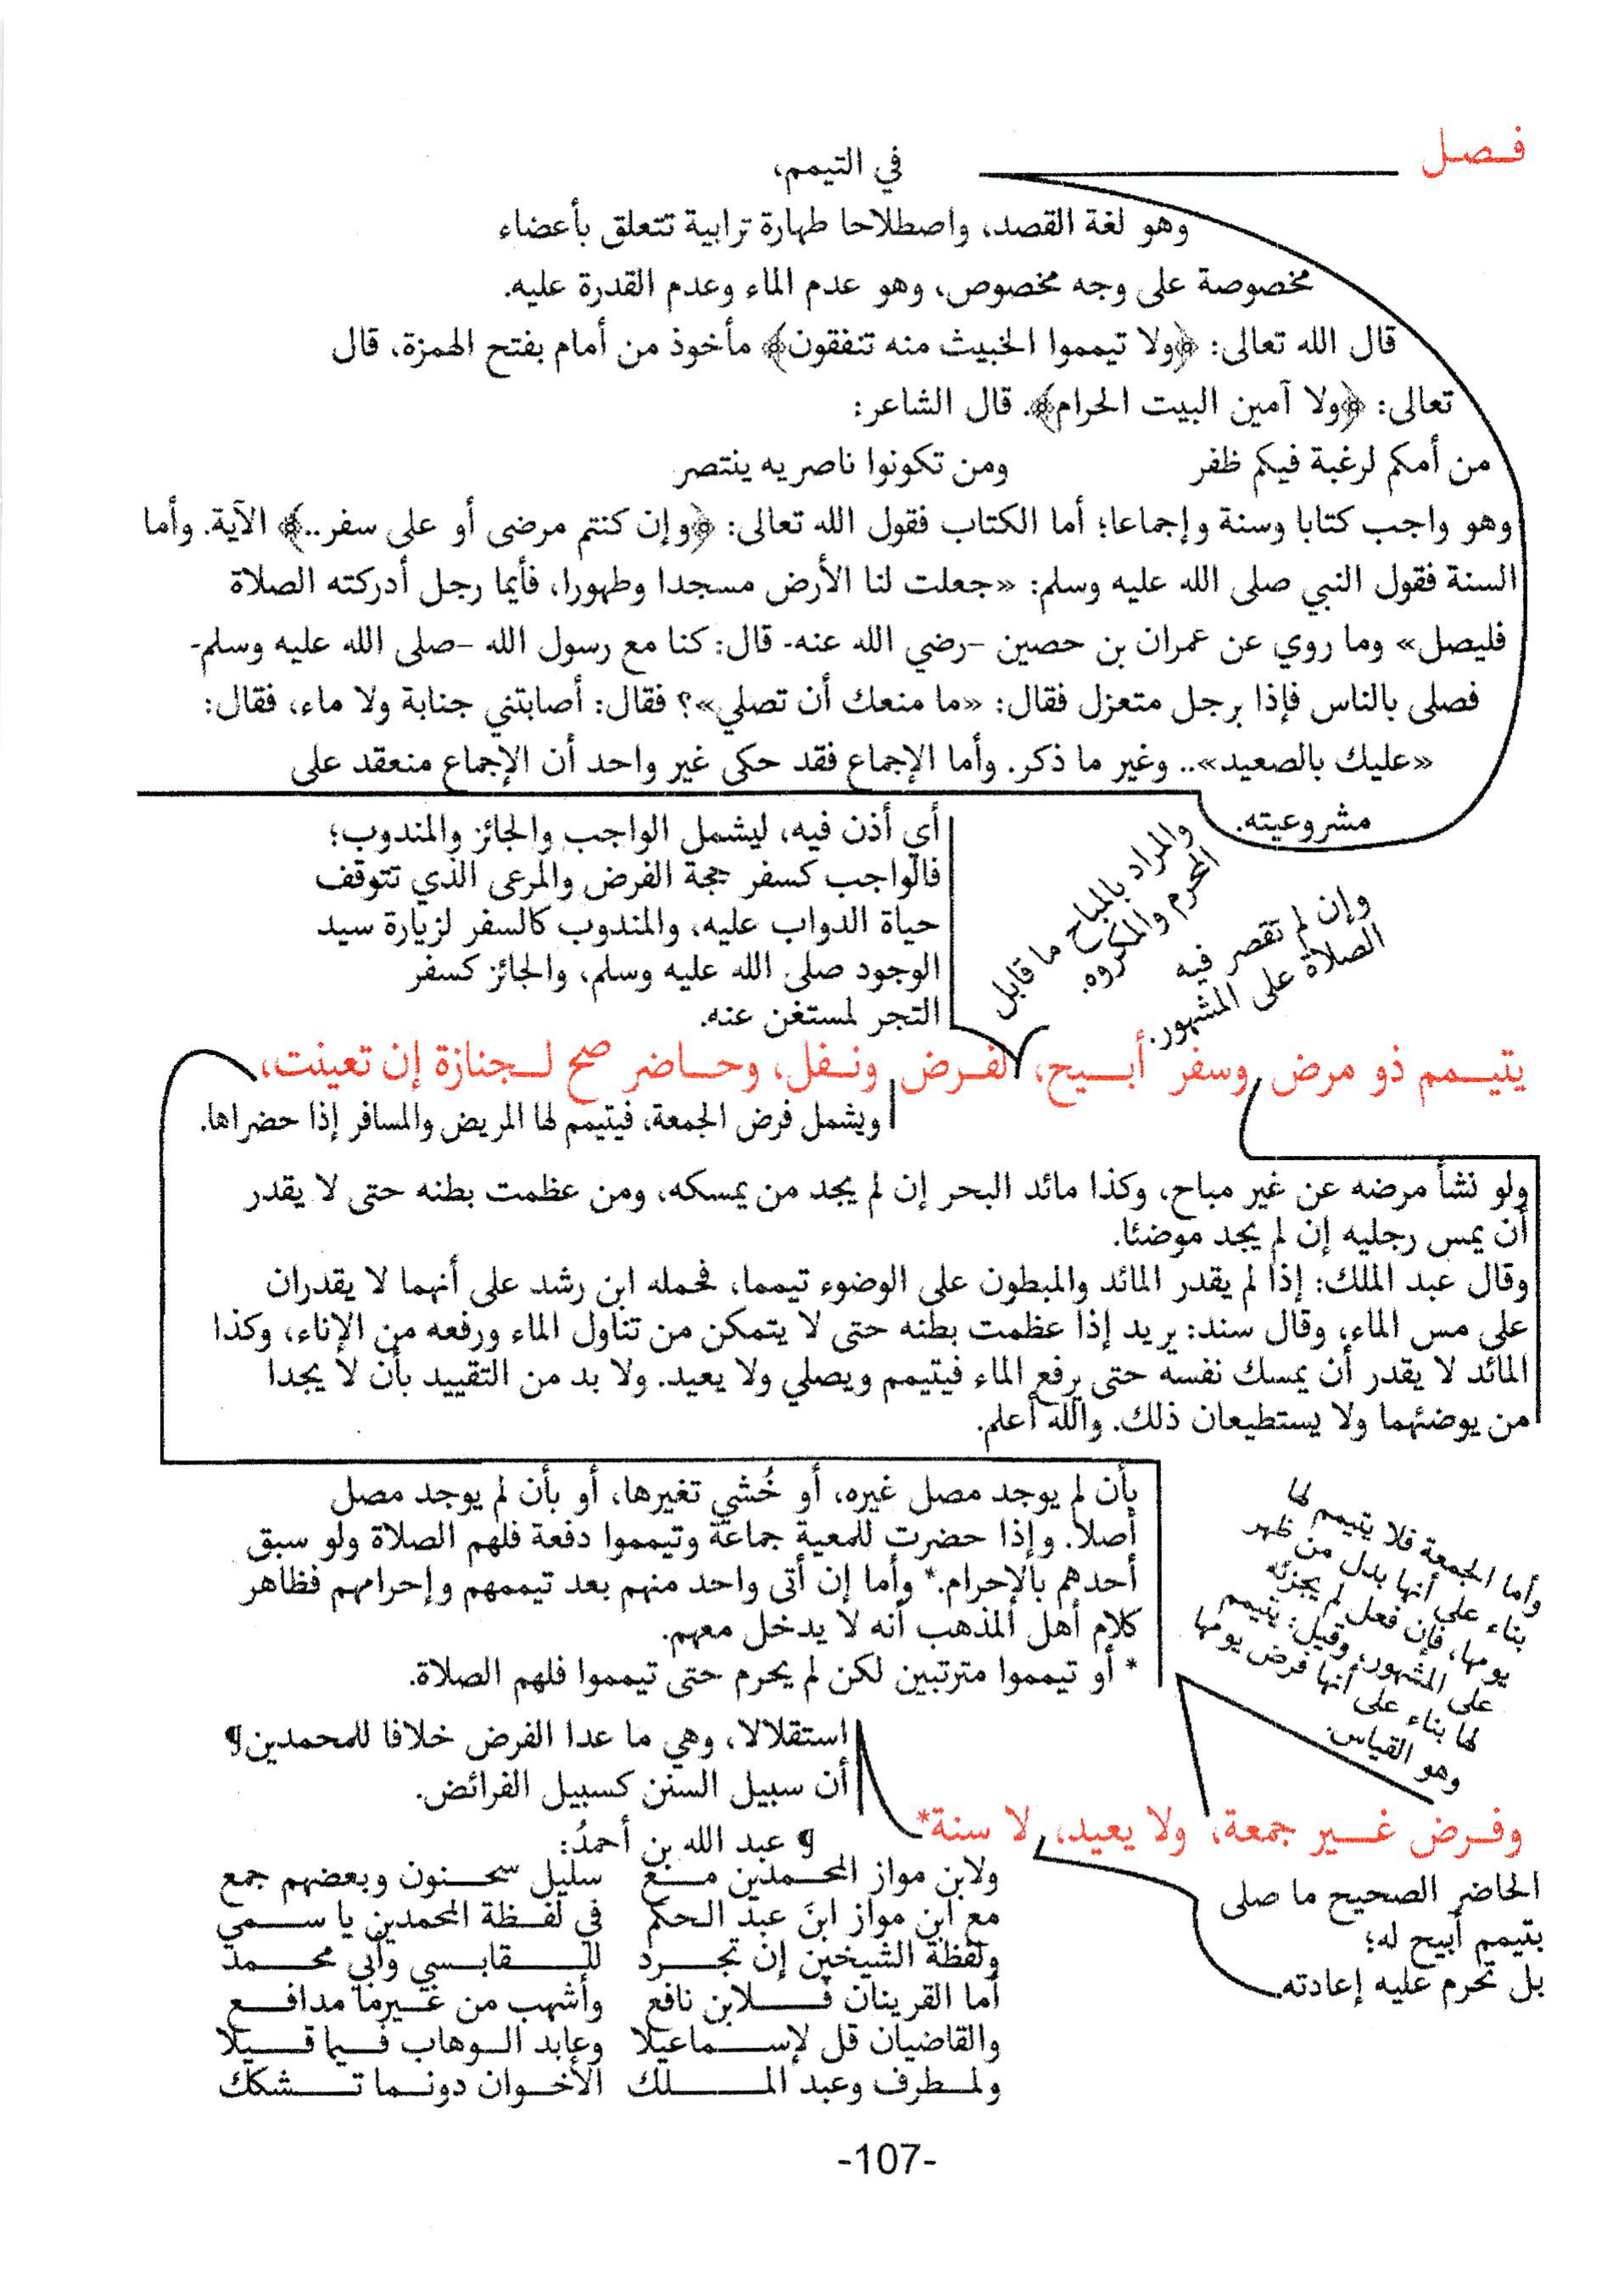 فـصـل
في التيمم،
وهو لغة القصد، واصطلاحا طهارة ترابية تتعلق بأعضاء
مخصوصة على وجه مخصوص، وهو عدم الماء وعدم القدرة عليه.
قال الله تعالى: ﴿ولا تيمموا الخبيث منه تنفقون﴾ مأخوذ من أمام بفتح الهمزة، قال
تعالى: ﴿ولا آمين البيت الحرام﴾. قال الشاعر:
من أمكم لرغبة فيكم ظفر ومن تكونوا ناصريه ينتصر
وهو واجب كتابا وسنة وإجماعا؛ أما الكتاب فقول الله تعالى: ﴿وإن كنتم مرضى أو على سفر..﴾ الآية. وأما
السنة فقول النبي صلى الله عليه وسلم: «جعلت لنا الأرض مسجدا وطهورا، فأيما رجل أدركته الصلاة
فليصل» وما روي عن عمران بن حصين -رضي الله عنه- قال: كنا مع رسول الله -صلى الله عليه وسلم-
فصلى بالناس فإذا برجل متعزل فقال: «ما منعك أن تصلي»؟ فقال: أصابتني جنابة ولا ماء، فقال:
«عليك بالصعيد».. وغير ما ذكر. وأما الإجماع فقد حكى غير واحد أن الإجماع منعقد على
مشروعيته.
وإن لم تقصر فيه
الصلاة على المشهور.
والمراد بالمباح ما قابل
المحرم والمكروه.
أي أذن فيه، ليشمل الواجب والجائز والمندوب؛
فالواجب كسفر حجة الفرض والمرعى الذي تتوقف
حياة الدواب عليه، والمندوب كالسفر لزيارة سيد
الوجود صلى الله عليه وسلم، والجائز كسفر
التجر لمستغن عنه.
يتيـمـم ذو مرض وسفر أبـيح، لفـرض ونـفل، وحـاضر صح لـجنازة إن تعينت،
ويشمل فرض الجمعة، فيتيمم لها المريض والمسافر إذا حضراها.
ولو نشأ مرضه عن غير مباح، وكذا مائد البحر إن لم يجد من يمسكه، ومن عظمت بطنه حتى لا يقدر
أن يمس رجليه إن لم يجد موضئا.
وقال عبد الملك: إذا لم يقدر المائد والمبطون على الوضوء تيمما، فحمله ابن رشد على أنهما لا يقدران
على مس الماء، وقال سند: يريد إذا عظمت بطنه حتى لا يتمكن من تناول الماء ورفعه من الإناء، وكذا
المائد لا يقدر أن يمسك نفسه حتى يرفع الماء فيتيمم ويصلي ولا يعيد. ولا بد من التقييد بأن لا يجدا
من يوضئهما ولا يستطيعان ذلك. والله أعلم.
بأن لم يوجد مصل غيره، أو خُشي تغيرها، أو بأن لم يوجد مصل
أصلا. وإذا حضرت للمعية جماعة وتيمموا دفعة فلهم الصلاة ولو سبق
أحدهم بالإحرام.* وأما إن أتى واحد منهم بعد تيممهم وإحرامهم فظاهر
كلام أهل المذهب أنه لا يدخل معهم.
* أو تيمموا مترتبين لكن لم يحرم حتى تيمموا فلهم الصلاة.
وأما الجمعة فلا يتيمم لها
بناء على أنها بدل من ظهر
يومها، فإن فعل لم يجزئه
على المشهور، وقيل: يتيمم
لها بناء على أنها فرض يومها
وهو القياس.
استقلالا، وهي ما عدا الفرض خلافا للمحمدين¶
أن سبيل السنن كسبيل الفرائض.
وفـرض غـير جمعة، ولا يعيد، لا سنة*
الحاضر الصحيح ما صلى
بتيمم أبيح له؛
بل تحرم عليه إعادته.
¶ عبد الله بن أحمدُ:
ولابن مواز المحـمدين مـع سليل سحـنون وبعضهم جمع
مع ابن مواز ابنَ عبد الحكم في لفـظة المحمدين يا سـمي
ولفظة الشيخين إن تجـرد للـقابـسي وأبي محـمد
أما القرينان فـلابن نافع وأشهب من غـيرما مدافـع
والقاضيان قل لإسـماعيلا وعابد الـوهاب فـيما قـيلا
ولمـطرف وعبد المـلك الأخـوان دونـما تـشكك
-107-